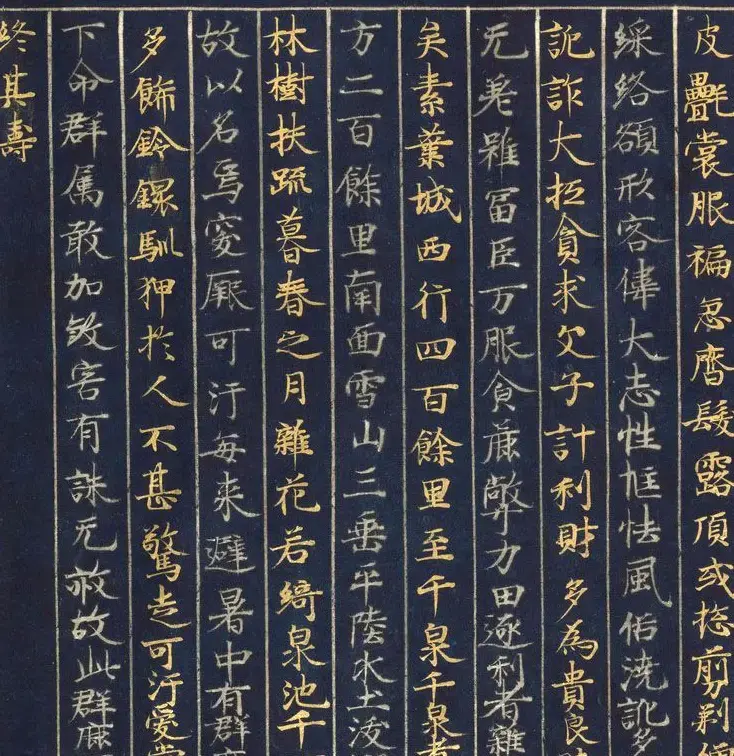 皮㲲裳服褊急齊髮露頂或捻剪剃
綵絡額形容偉大志性恇怯風俗澆訛多
詭詐大抵貪求父子計利財多為貴良
无差雖富巨万服食麁弊力田逐利者雜
矣素葉城西行四百餘里至千泉千泉者
方二百餘里南面雪山三垂平陸水土沃
林樹扶疏暮春之月雜花若綺泉池千
故以名焉突厥可汗每来避暑中有群鹿
多飾鈴鐶馴狎於人不甚驚走可汗愛賞
下命群属敢加煞害有誅无赦故此群鹿
終其壽